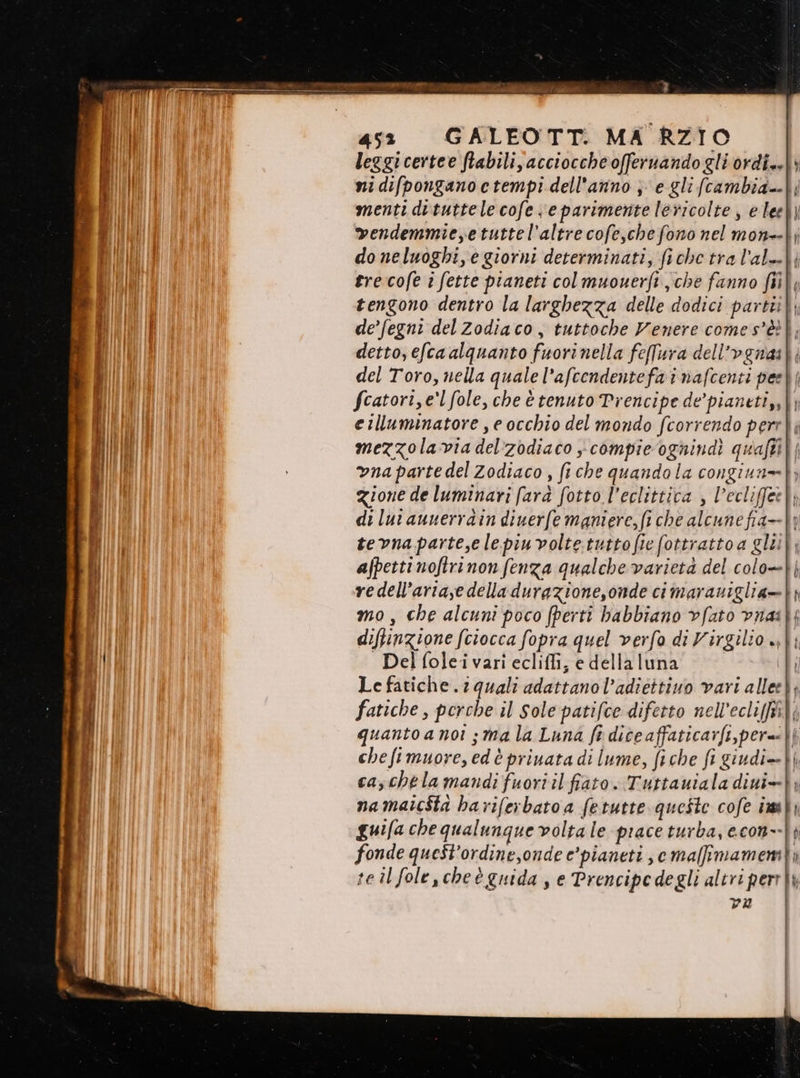 452 GALEOTT. MARZIO
leggi certe e ſtabili, acciocche oſſeruando gli ordi-
ni diſpongano e tempi dell'anno ; e gli ſcambia-
menti di tutte le coſe ; e parimente le ricolte , e le
vendemmie, e tutte l'altre coſe, che ſono nel mon-
do ne luoghi, e giorni determinati, ſi che tra l'al-
tre coſe i ſette pianeti col muouerſi , che fanno ſi
tengono dentro la larghezza delle dodici parti
de'ſegni del Zodiaco , tuttoche Venere come s'è
detto, eſca alquanto fuori nella feſſura dell'vgna
del Toro, nella quale l'aſcendente fa i naſcenti pe
ſcatori, e'l ſole, che è tenuto Prencipe de'pianeti,
e illuminatore , e occhio del mondo ſcorrendo per
mezzo la via del zodiaco , compie ogni ndì quaſi
vna parte del Zodiaco , ſi che quando la congiun-
zione de luminari ſarà ſotto l'eclittica , l'ecliſſe
di lui auuerrà in diuerſe maniere, ſi che alcune fia-
te vna parte, e le piu volte tutto ſie ſottratto a gli
aſpetti noſtri non ſenza qualche varietà del colo-
re dell'aria, e della durazione, onde ci marauiglia-
mo , che alcuni poco ſperti habbiano vſato vna
diſtinzione ſciocca ſopra quel verſo di Virgilio .
Del ſole i vari ecliſſi, e della luna
Le fatiche . i quali adattano l'adiettiuo vari alle
fatiche , perche il Sole patiſce difetto nell'ecliſſi
quanto a noi ; ma la Luna ſi dice affaticarſi, per-
che ſi muore, ed è priuata di lume, ſi che ſi giudi-
ca, che la mandi fuori il fiato . Tuttauia la diui-
na maieſtà ha riſerbato a ſe tutte queſte coſe in
guiſa che qualunque volta le piace turba, e con-
fonde queſt'ordine, onde e'pianeti , e maſſimamen
te il ſole , che è guida , e Prencipe de gli altri per
vn